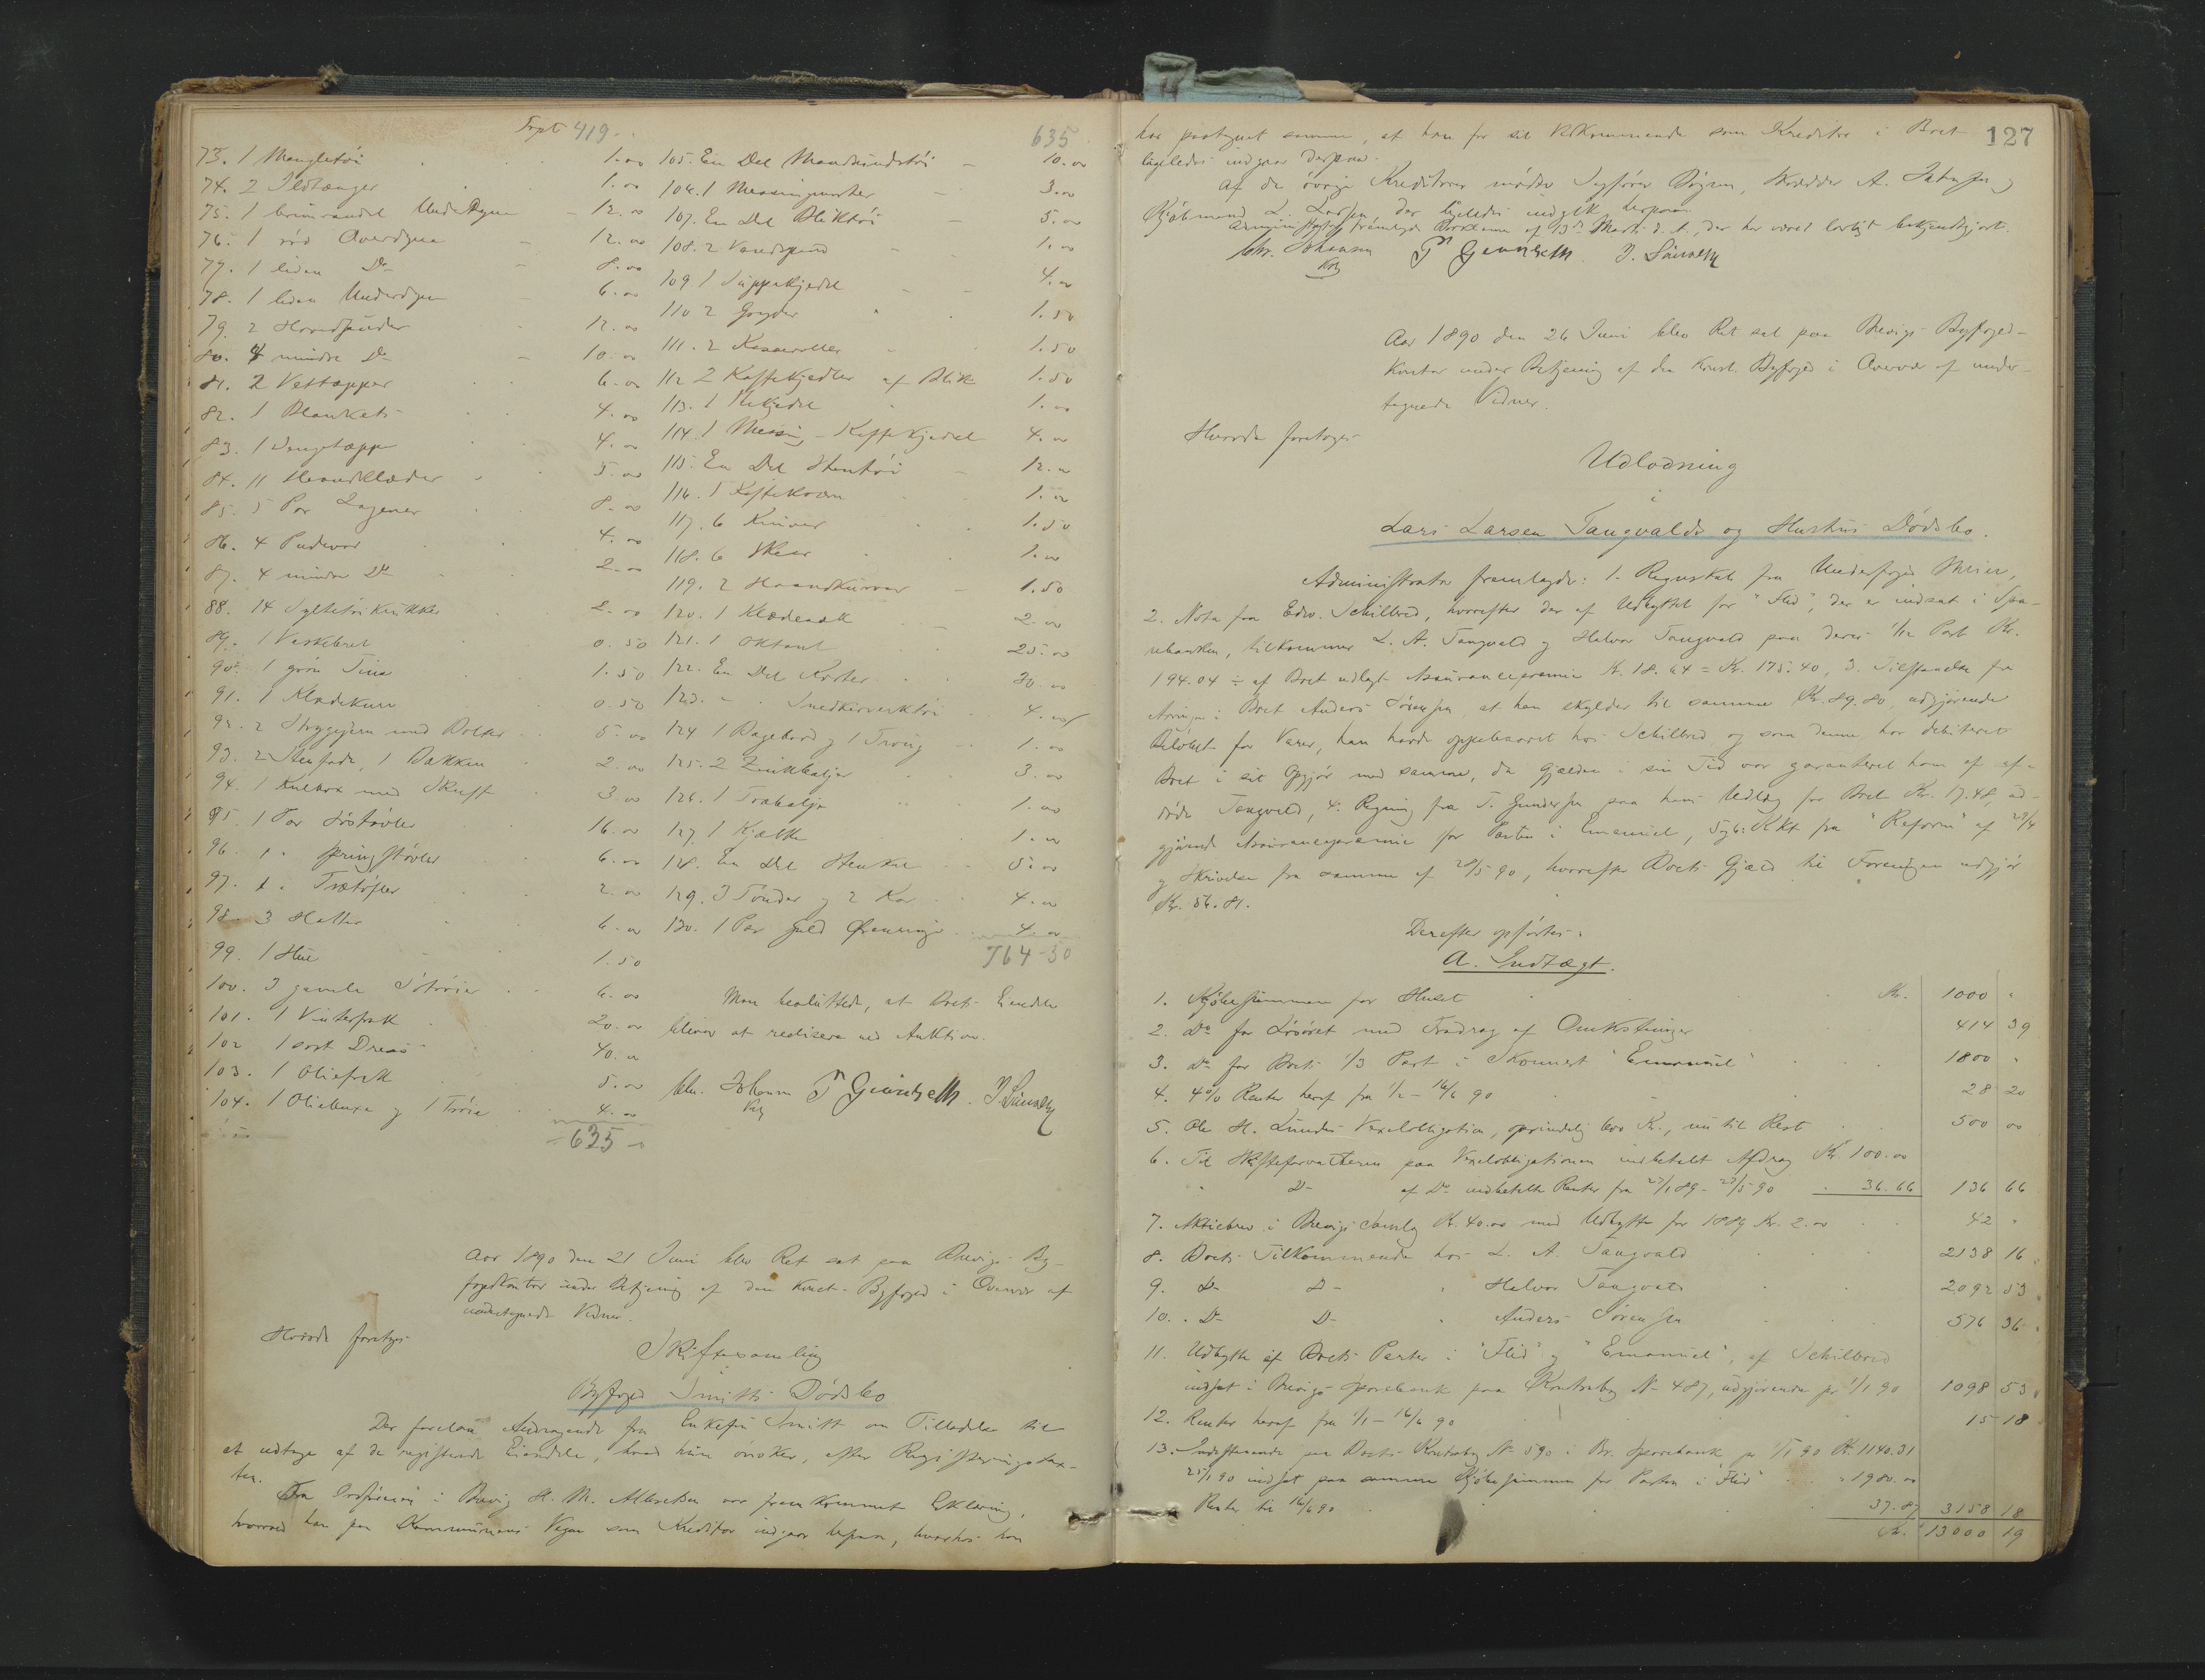 Trpt 419
73. 1 Mangletöi 1.00
74. 2 Ildtænger 1.00
75. 1 brunrandet Underdyne 12.00
76. 1 rød Overdyne 12.00
77. 1 liden Do 8.00
78. 1 liden Underdyne 6.00
79. 2 Hovedpuder 12.00
80. 4 mindre Do 10.00
81. 2 Vattepper 6.00
82. 1 Blankets 4.00
83. 1 Sengetæppe 4.00
84. 11 Haandklæder 5.00
85. 5 Par Lagener 8.00
86. 4 Pudevar 4.00
87. 4 mindre Do 2.00
88. 14 Syltetöikrukker 2.00
89. 1 Vaskebret 0.50
90. 1 grön Tine 1.50
91. 1 Klædekurv 0.50
92. 2 Strygejern med Bolter 5.00
93. 2 Stenfade, 1 Bakken 2.00
94. 1 Kulbox med Skuffe 3.00
95. 1 Par Sjöstøvler 16.00
96. 1 " Springstøvler 6.00
97. 1 " Trætøfler 2.00
98. 3 Hatter 6.00
99. 1 Hue 1.50
100. 3 gamle Sötröier 6.00
101. 1 Vinterfrak 20.00
102 1 sort Dress 40.00
103. 1 Oliefrak 5.00
104. 1 Oliebuxe og 1 Trøie 4.00
635
635
105. En Del Manskindstöi 10.00
106. 1 Messingmorter 3.00
107. En Del Bliktöi 5.00
108. 2 Vandspand 1.00
109 1 Suppekjedel 4.00
110 2 Gryder 1.50
111. 2 Kasseroller 1.50
112 2 Kaffekjedler af Blik 1.50
113. 1 Thekjedel 1.00
114. 1 Messing-Kaffekjedel 4.00
115. En Del Stentöi 12.00
116. 1 Kaffekværn 1.00
117. 6 Kniver 1.50
118. 6 Skeer 1.00
119. 2 Haandkurver 1.50
120. 1 Klædesæk 2.00
121. 1 Oktant 25.00
122. En Del Karter 30.00
123. " " Snedkerverktöi 4.00
124 1 Bagebord og 1 Traug 1.00
125. 2 Zinkbaljer 3.00
126. 1 Træbalje 1.00
127. 1 Kjælke 1.00
128. En Del Stenkul 5.00
129. 3 Tönder og 2 Kar 4.00
130. 1 Par Guld Örenringe 4.00
764-50
Man besluttede, at Boets Eiendele
bliver at realisere ved Auktion.
Chr. Johansen T Gundersen. J. Simonsen
Kst
Aar 1890 den 21 Juni blev Ret sat paa Brevigs By-
fogedkontor under Betjening af den Konst. Byfoged i Overvær af
undertegnede Vidner.
Hvorda foretoges
Skiftesamling
i
Byfoged Smitts Dødsbo
Der forelaa Andragende fra Enkefru Smitt om Tilladelse til
at udtage af de registrerede Eiendele, hvad hun önsker, efter Registreringstax-
ten.
Fra Ordförer i Brevig H. M. Albretsen var fremkommet Erklæring,
hvorved han paa Kommunens Vegne som Kreditor indgaar herpaa, hvorhos han
127
har paategnet samme, at han for sit Vedkommende som Kreditor i Boet
ligeledes indgaar derpaa.
Af de övrige Kreditorer mödte Sagförer Bögun, Skrædder A. Jakobsen og
Kjöbmand L. Larsen, der ligeledes indgik herpaa.
Administrator fremlagde Proklama af 13de Marts d. A., der har været lovligt bekjendtgjort.
Chr. Johansen T Gundersen. J. Simonsen
Kst
Aar 1890 den 26 Juni blev Ret sat paa Brevigs Byfoged-
kontor under Betjening af den Konst. Byfoged i Overvær af under-
tegnede Vidner.
Hvorda foretoges
Udlodning
i
Lars Larsen Tangvalds og Hustrus Dödsbo.
Administrator fremlagde: 1. Regnskab fra Underfoged Meier,
2. Nota fra Edv. Schilbred, hvorefter der af Udbyttet for "Flid", der er indsat i Spa-
rebanken, tilkommer L. A. Tangvald og Halvor Tangvald paa deres 1/12 Part Kr.
194.04 ÷ af Boet udlagt Assurancepræmie Kr. 18.64 = Kr. 175.40, 3. Tilstaaelse fra
Arving i Boet Anders Sörensen, at han skylder til samme Kr. 89.80, udgjörende
Belöbet for Varer, han havde oppebaaret hos Schilbred og som denne har debiteret
Boet i sit Opgjör med samme, da Gjælden i sin Tid var garanteret ham af af-
döde Tangvald, 4. Regning fra T. Gundersen paa hans Udlæg for Boet Kr. 17.48, ud-
gjörende Assurancepræmie for Parten i Emanuel, 5 og 6: Rkt fra "Reform" af 29/4
og Skrivelse fra samme af 28/5 90, hvorefter Boets Gjæld til Foreningen udgjör
Kr. 56.81.
Derefter opförtes:
A. Indtægt.
1. Kjöbesummen for Huset Kr. 1000 "
2. Do for Lösöret med Fradrag af Omkostninger 414 39
3. Do for Boets 1/3 Part i Skonnert "Emanuel" 1800 "
4. 4% Renter heraf fra 1/2 - 16/6 90 28 20
5. Ole H. Lunds Vexelobligation, oprindelig 600 Kr., nu til Rest 500 00
6. Til Skifteforvalteren paa Vexelobligationen indbetalt Afdrag Kr. 100.00
" Do af Do indbetalte Renter fra 23/1 89 - 23/5 90 " 36.66 136 66
7. Aktiebrev i Brevigs Samlag Kr. 40.00 med Udbytte for 1889 Kr. 2.00 42 "
8. Boets Tilkommende hos L. A. Tangvald 2138 16
9. Do Do " Halvor Tangvald 2092 53
10. Do Do " Anders Sörensen 576 36
11. Udbytte af Boets Parter i "Flid" og "Emanuel", af Schilbred
indsat i Brevigs Sparebank paa Kontrabog No 487, udgjörende pr 1/1 90 1098 53
12. Renter heraf fra 1/1 - 16/6 90 15 18
13. Indestaaende paa Boets Kontrabog No 590 i Br. Sparebank pr 1/1 90 Kr. 1140.31
25/1 90 indsat paa samme Kjöbesummen for Parten i "Flid" " 1980.00
Renter til 16/6 90 37.87 3158 18
Kr. 13000 19